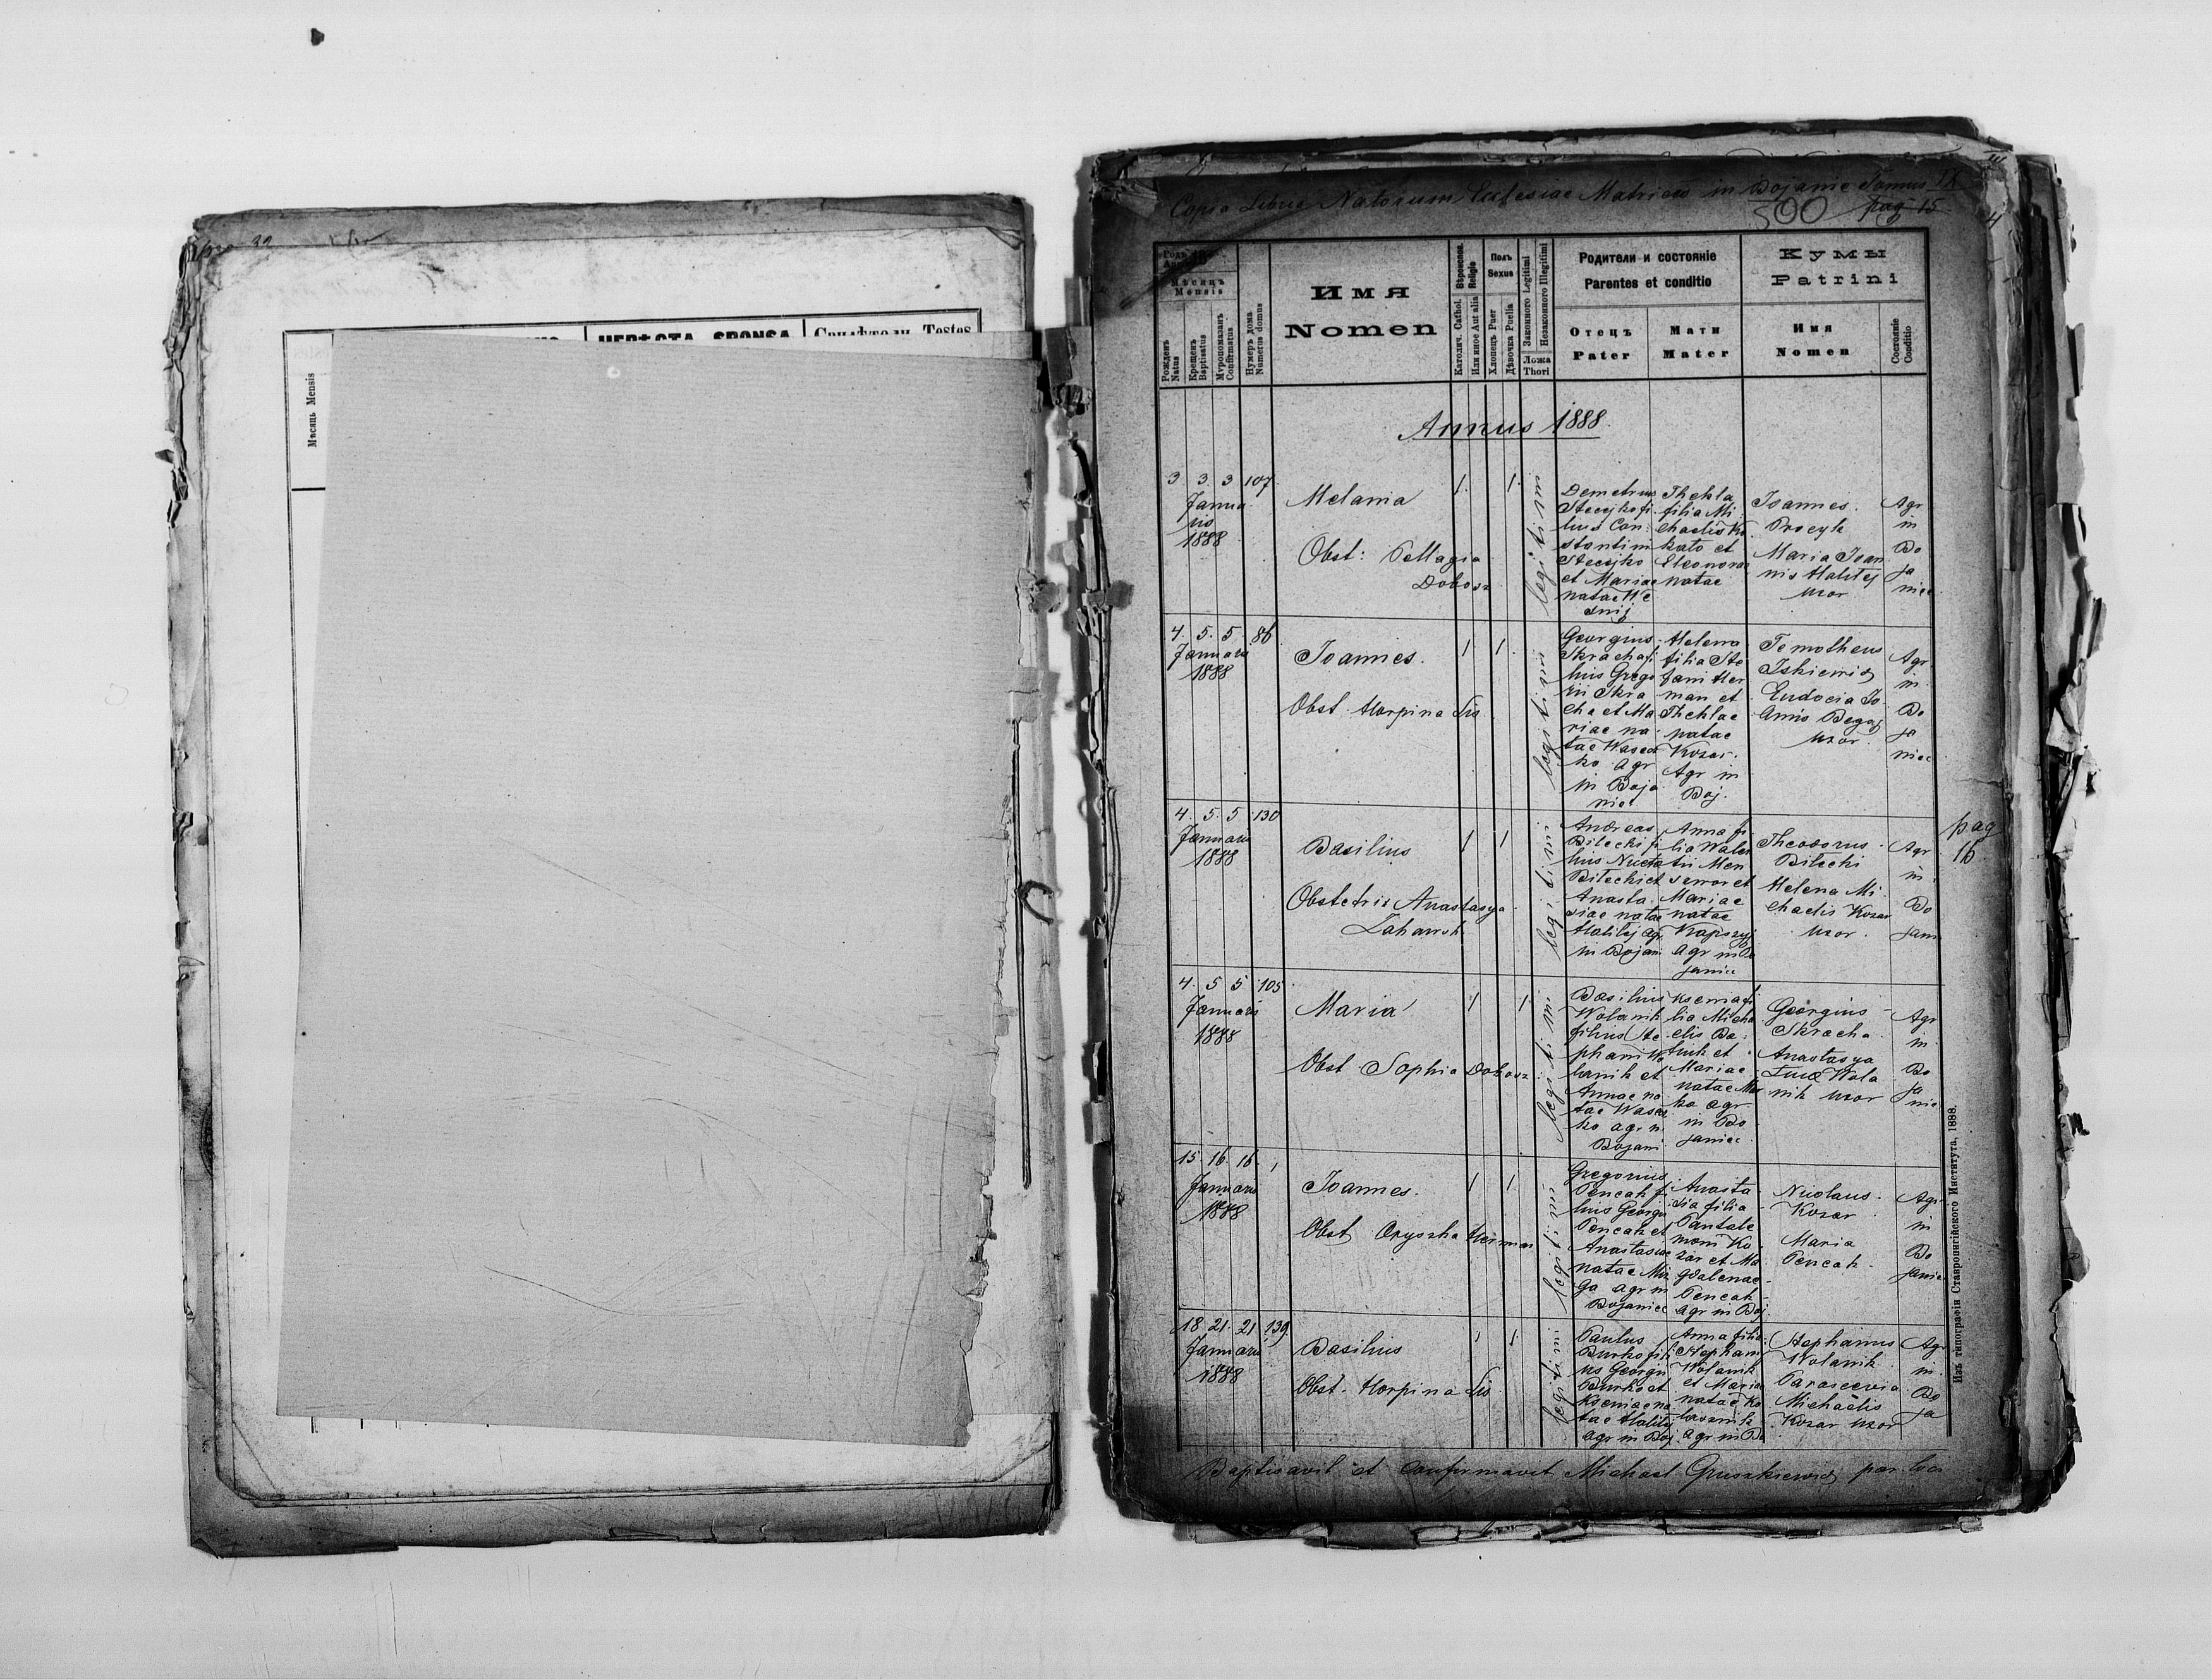 Свидѣтели Testes
Мѣсяць Mensis
Copia Libri Natorum Ecclesiae Matricis in Bojanic Tomus IX
500 pag 15
Годъ
Мѣсяцъ
Mensis
Рожденъ
Natus
Крещенъ
Baptisatus
Мѵропомазанъ
Confirmatus
Нумеръ дома
Numerus domus
Имя
Nomen
Вѣроиспов.
Religio
Католич. Cathol.
Или иное Aut alia
Полъ
Sexus
Хлопецъ Puer
Дѣвочка Puella
Законного Legitimi
Незаконного Illegitimi
Ложа
Thori
Родители и состояніе
Parentes et conditio
Отецъ
Pater
Мати
Mater
Кумы
Patrini
Имя
Nomen
Состояніе
Conditio
Annus 1888.
3 3. 3 107.
Janua
rio
1888
Melania
Obst: Pellagia
Dobosz
1. 1.
legitimi
Demetrius
Stecyko fi
lius Con
stantini
Stecyko
et Mariae
natae
Thekla
filia Mi
chaelis
et
Eleonorae
natae
Joannes
Procyk
Maria Joan
nis Halitej
uxor
Agr
in
Bo
ja
niec
4. 5. 5. 86
Januarii
1888
Joannes.
Obst. Horpina Lis
1 1.
legitimi
Georgius
Skracha fi
lius Grego
rii Skra
cha et Ma
riae na
tae Wasco
ko agr
in Boja
niec
Helena
filia Ste
fani Her
man et
Theklae
natae
Kozar.
Agr in
Boj.
Temotheus
Eudocia Jo
annis
uxor.
Agr
in
Bo
ja
niec
4. 5. 5 130
Januarii
1888
Basilius
Obstetrix Anastasya
1 1
legitimi
Andreas
Bilecki fi
lius
Bilecki et
Anasta
siae natae
Halitej agr
in Bojani
Anna fi
lia
et
Mariae
natae
agr in Bo
janiec
Theodorus
Bilecki
Helena Mi
chaelis Kozar
uxor.
Agr
in
Bo
jani
pag
16
4. 5 5 105
Januarii
1888
Maria
Obst Sophia Dobosz
1 1
legitimi
Basilius
Wolanik
filius Ste
phani Wo
lanik et
Annae na
tae Wasco
ko agr in
Bojani
Ksenia fi
lia Micha
elis Ba
et
Mariae
natae
ko agr
in Bo
janiec
Georgius
Skracha
Anastasya
Wola
nik uxor
Agr
in
Bo
ja
niec
15. 16. 16. 1
Januarii
1888
Joannes.
Obst Oryszka Herman
1 1
legitimi
Gregorius
Pencak fi
lius Georgii
Pencak et
Anastasiae
natae
agr in
Bojaniec
Anasta
sia filia
Pantale
moni Ko
zar et Ma
gdalenae
Pencak
agr in Boj
Nicolaus
Kozar
Maria
Pencak.
Agr
in
Bo
janiec
18. 21. 21. 139.
Januarii
1888
Basilius
Obst. Horpina Lis
1 1.
legitimi
Paulus
Burko fili
us Georgii
Burko et
Kseniae na
tae Halitej
agr in Boj.
Anna filia
Stephani
Wolanik
et Mariae
natae
agr in Bo
Stephanus
Wolanik
Parascevia
Michaelis
Kozar uxor
Agr
in
Bo
ja
Baptisavit et confirmavit Michael Gruszkiewicz par. loci
Изъ типографіи Ставропигійского Института, 1888.